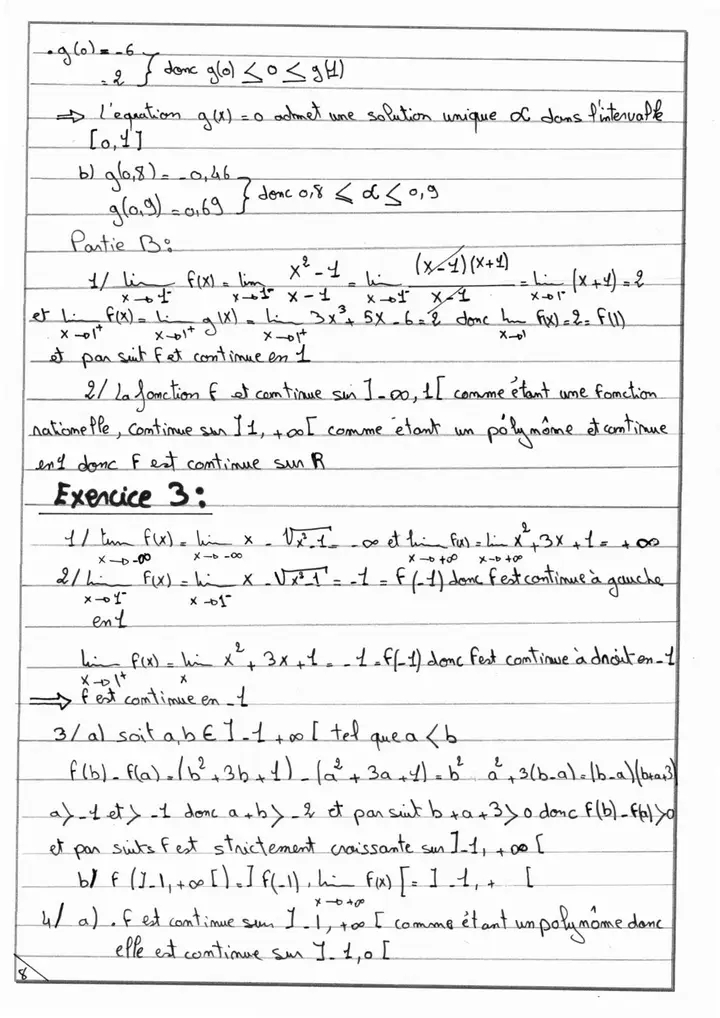 . g(0) = -6
= 2 } donc g(0) ≤ 0 ≤ g(1)
⇒ l'equation g(x) = 0 admet une solution unique α dans l'intervalle
[0,1]
b) g(0,8) = -0,46
g(0,9) = 0,69 } donc 0,8 ≤ α ≤ 0,9
Partie B:
1/ lim x→1⁻ f(x) = lim x→1⁻ (x²-1)/(x-1) = lim x→1⁻ (x-1)(x+1)/(x-1) = lim x→1⁻ (x+1) = 2
et lim x→1⁺ f(x) = lim x→1⁺ g(x) = lim x→1⁺ 3x³+5x-6=2 donc lim x→1 f(x)=2=f(1)
et par suit f et continue en 1
2/ La fonction f et continue sur ]-∞,1[ comme étant une fonction
rationnelle, continue sur ]1,+∞[ comme étant un polynôme et continue
en 1 donc f est continue sur R
Exercice 3:
1/ lim x→-∞ f(x) = lim x→-∞ x - √x²-1 = -∞ et lim x→+∞ f(x) = lim x→+∞ x²+3x+1 = +∞
2/ lim x→1⁻ f(x) = lim x→1⁻ x - √x²-1 = -1 = f(-1) donc f est continue à gauche
en 1
lim x→1⁺ f(x) = lim x x²+3x+1 = -1 = f(-1) donc f est continue à droit en -1
⇒ f est continue en -1
3/ a) soit a,b ∈ ]-1 +∞[ tel que a < b
f(b)-f(a)=(b²+3b+1)-(a²+3a+1)=b² a²+3(b-a)=(b-a)(b+a+3)
a>-1 et >-1 donc a+b>-2 et par suit b+a+3>0 donc f(b)-f(a)>0
et par suits f est strictement croissante sur ]-1,+∞[
b/ f(]-1,+∞[)=]f(-1), lim x→+∞ f(x)[=]-1,+ [
4/ a) . f est continue sur ]-1,+∞[ comme étant un polynôme donc
elle est continue sur ]-1,0[
8